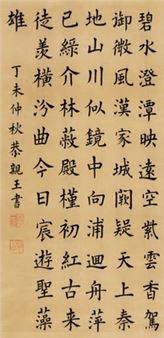 碧水澄潭映遠空紫雲香駕
御微風漢家城闕疑天上秦
地山川似鏡中向浦迴舟萍
已綠分林蔽殿槿初紅古来
徒羨橫汾曲今日宸遊聖藻
雄
丁未仲秋恭親王書